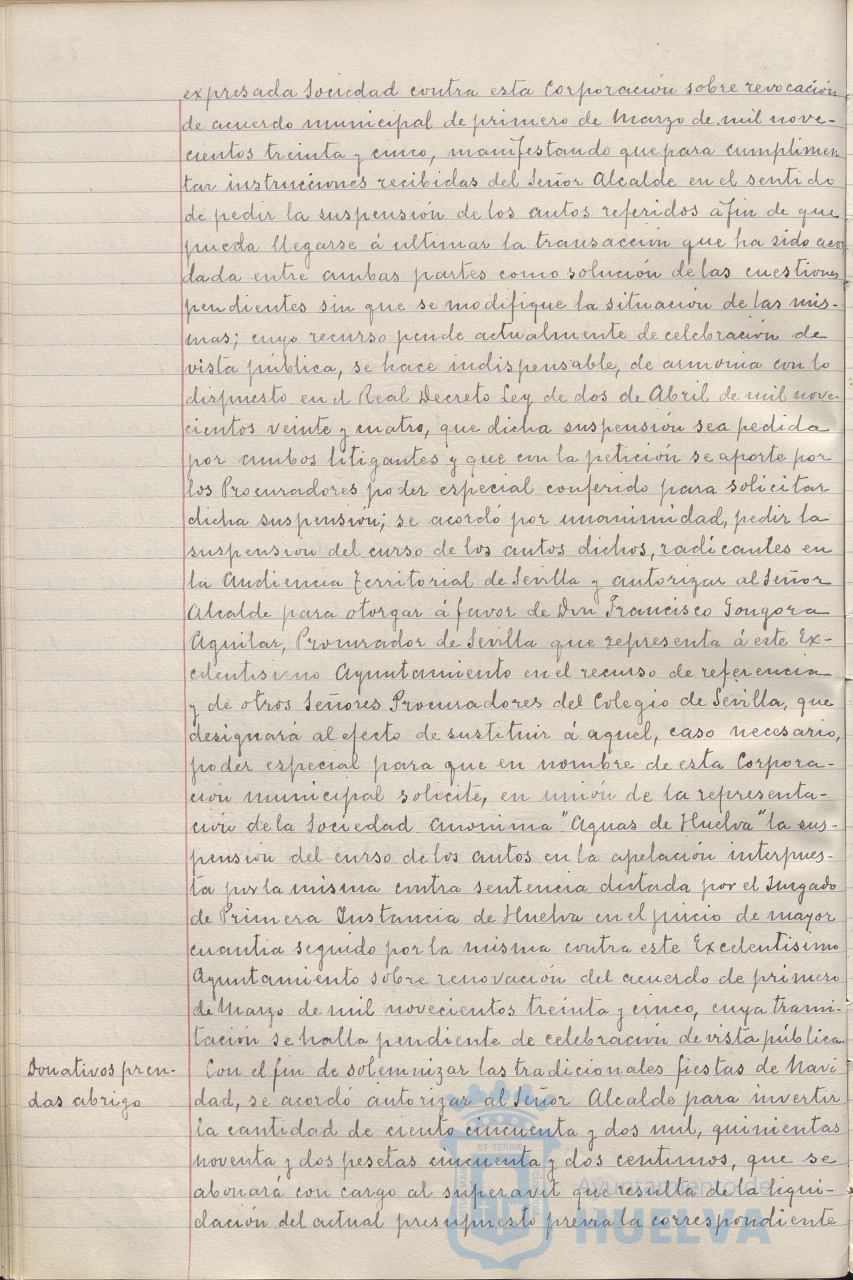 expresada Sociedad contra esta Corporación sobre revocación
de acuerdo municipal de primero de Marzo de mil nove-
cientos treinta y cinco, manifestando que para cumplimen
tar instrucciones recibidas del Señor Alcalde en el sentido
de pedir la suspensión de los autos referidos á fin de que
pueda llegarse á ultimar la transacción que ha sido acor
dada entre ambas partes como solución de las cuestiones
pendientes sin que se modifique la situación de las mis-
mas; cuyo recurso pende actualmente de celebración de
vista pública, se hace indispensable, de armonia con lo
dispuesto en el Real Decreto Ley de dos de Abril de mil nove-
cientos veinte y cuatro, que dicha suspensión sea pedida
por ambos litigantes y que con la petición se aporte por
los Procuradores poder especial conferido para solicitar
dicha suspensión; se acordó por unanimidad, pedir la
suspension del curso de los autos dichos, radicantes en
la Audiencia Territorial de Sevilla y autorizar al Señor
Alcalde para otorgar á favor de Don Francisco Gongora
Aguilar, Procurador de Sevilla que representa á este Ex-
celentisimo Ayuntamiento en el recurso de referencia
y de otros Señores Procuradores del Colegio de Sevilla, que
designará al efecto de sustituir á aquel, caso necesario,
poder especial para que en nombre de esta Corpora-
ción municipal solicite, en unión de la representa-
ción de la Sociedad Anonima "Aguas de Huelva" la sus-
pensión del curso de los autos en la apelación interpues-
ta por la misma contra sentencia dictada por el Juzgado
de Primera Instancia de Huelva en el juicio de mayor
cuantia seguido por la misma contra este Excelentisimo
Ayuntamiento sobre renovación del acuerdo de primero
de Marzo de mil novecientos treinta y cinco, cuya trami-
tación se halla pendiente de celebración de vista pública.
Donativos pren-
das abrigo
Con el fin de solemnizar las tradicionales fiestas de Navi
dad, se acordó autorizar al Señor Alcalde para invertir
la cantidad de ciento cincuenta y dos mil, quinientas
noventa y dos pesetas cincuenta y dos centimos, que se
abonará con cargo al superavit que resulta de la liqui-
dación del actual presupuesto previa la correspondiente
ET TERRÆ
Ayuntamiento de
HUELVA